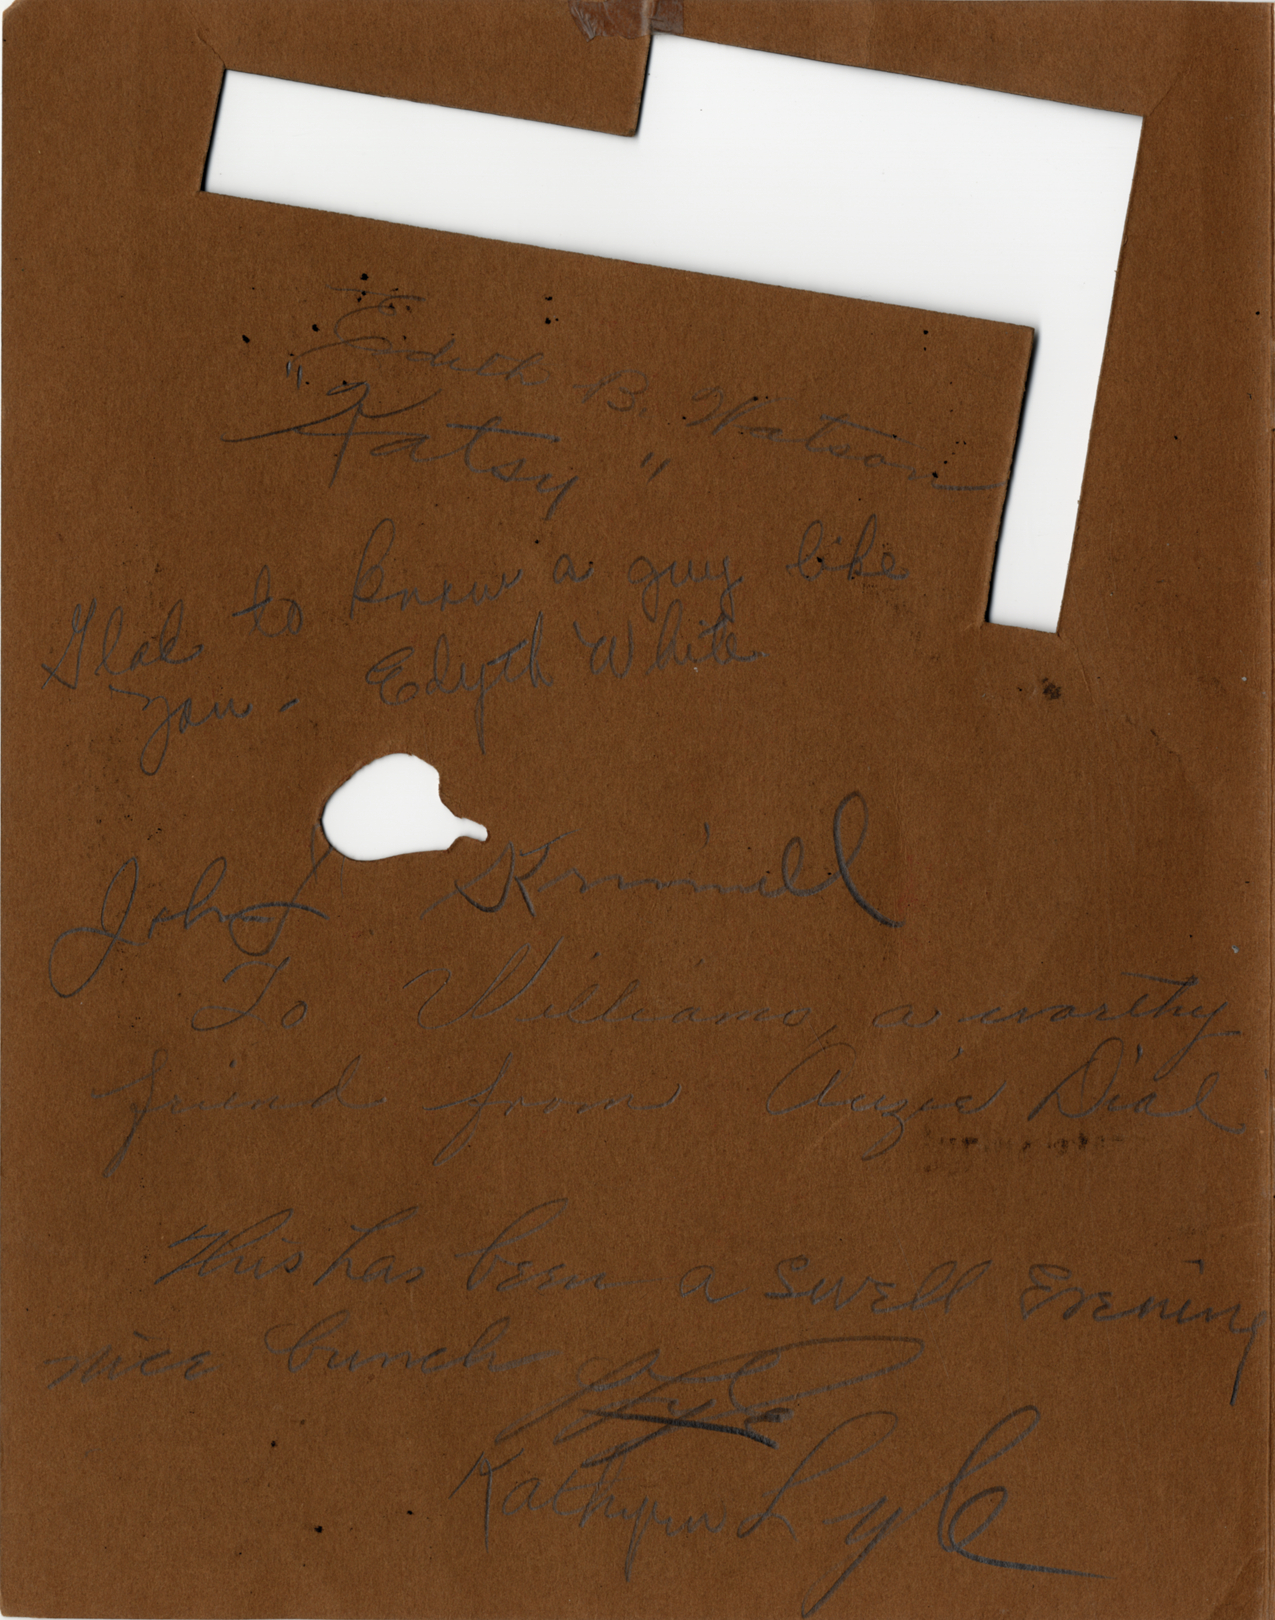 Edith B. Watson
"Fatsy"
Glad to know a guy like
you - Edyth White
John Krimmell
To Williams, a worthy
friend from Auzie Dial
This has been a swell Evening
nice bunch
Kathryn Lyle